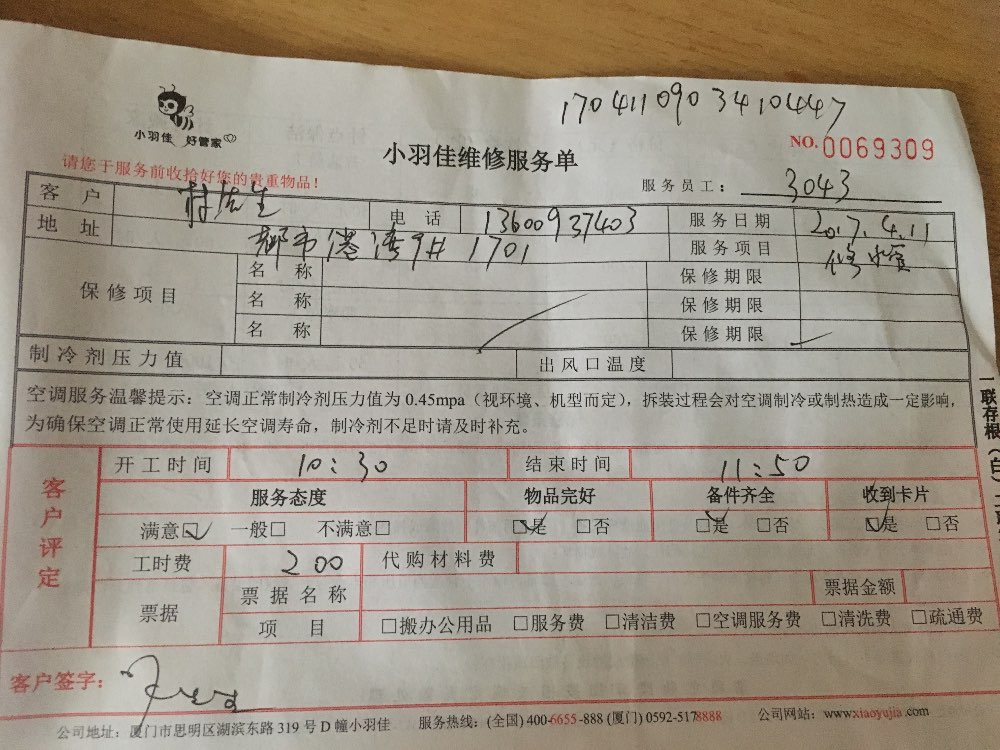 1704110903410447
小羽佳 好管家
小羽佳维修服务单
NO.0069309
请您于服务前收拾好您的贵重物品！
服务员工： 3043
客户 林先生 电话 13600937403 服务日期 2017.4.11
地址 都市港湾9# 1701 服务项目 修水管
保修项目 名称 保修期限
名称 保修期限
名称 保修期限
制冷剂压力值 出风口温度
空调服务温馨提示：空调正常制冷剂压力值为 0.45mpa（视环境、机型而定），拆装过程会对空调制冷或制热造成一定影响，
为确保空调正常使用延长空调寿命，制冷剂不足时请及时补充。
一联存根（白）
客户评定
开工时间 10:30 结束时间 11:50
服务态度 物品完好 备件齐全 收到卡片
满意☑ 一般□ 不满意□ ☑是 □否 ☑是 □否 ☑是 □否
工时费 200 代购材料费
票据 票据名称 票据金额
项目 □搬办公用品 □服务费 □清洁费 □空调服务费 □清洗费 □疏通费
客户签字：
公司地址：厦门市思明区湖滨东路 319 号 D 幢小羽佳 服务热线：(全国) 400-6655-888 (厦门) 0592-5178888 公司网站：www.xiaoyujia.com